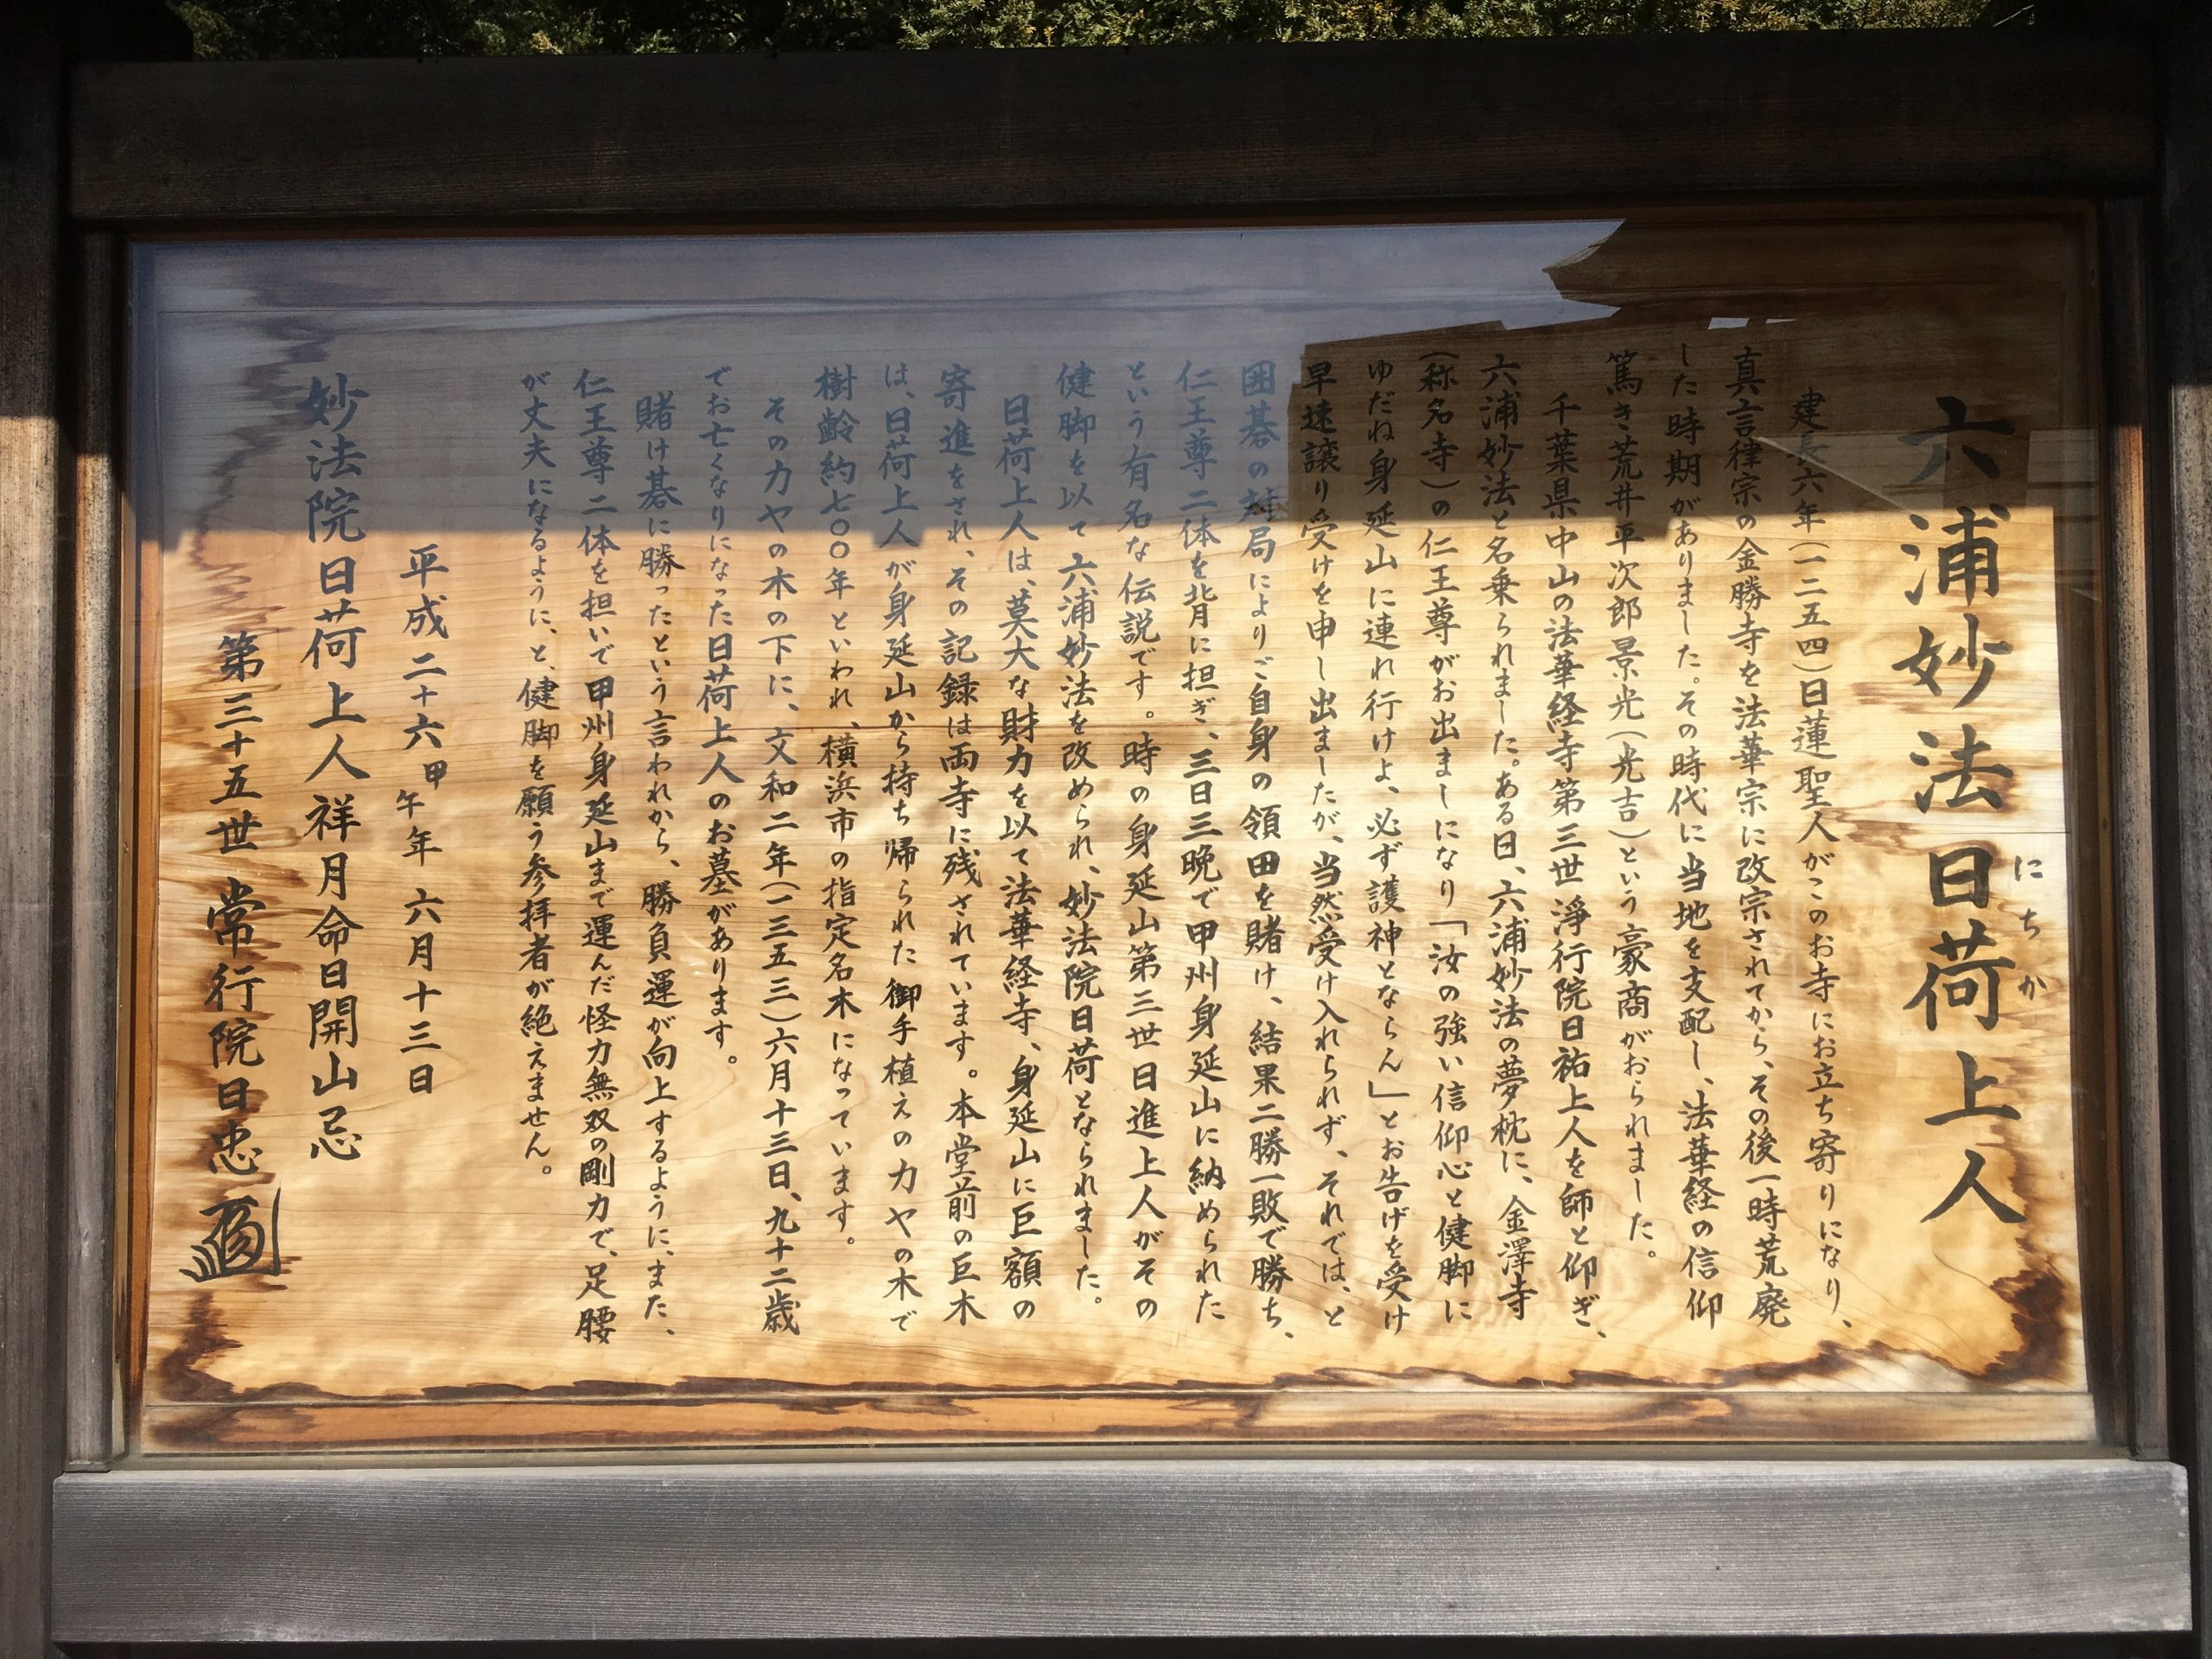 六浦妙法日荷上人
にちか
建長六年(一二五四)日蓮聖人がこのお寺にお立ち寄りになり、
真言律宗の金勝寺を法華宗に改宗されてから、その後一時荒廃
した時期がありました。その時代に当地を支配し、法華経の信仰
篤き荒井平次郎景光(光吉)という豪商がおられました。
千葉県中山の法華経寺第三世淨行院日祐上人を師と仰ぎ、
六浦妙法と名乗られました。ある日、六浦妙法の夢枕に、金澤寺
(称名寺)の仁王尊がお出ましになり「汝の強い信仰心と健脚に
ゆだね身延山に連れ行けよ、必ず護神とならん」とお告げを受け
早速譲り受けを申し出ましたが、当然受け入れられず、それでは、と
囲碁の対局によりご自身の領田を賭け、結果二勝一敗で勝ち、
仁王尊二体を背に担ぎ、三日三晩で甲州身延山に納められた
という有名な伝説です。時の身延山第三世日進上人がその
健脚を以て六浦妙法を改められ、妙法院日荷となられました。
日荷上人は、莫大な財力を以て法華経寺、身延山に巨額の
寄進をされ、その記録は両寺に残されています。本堂前の巨木
は、日荷上人が身延山から持ち帰られた御手植えのカヤの木で
樹齢約七〇〇年といわれ、横浜市の指定名木になっています。
そのカヤの木の下に、文和二年(一三五三)六月十三日、九十二歳
でお亡くなりになった日荷上人のお墓があります。
賭け碁に勝ったという言われから、勝負運が向上するように、また、
仁王尊二体を担いで甲州身延山まで運んだ怪力無双の剛力で、足腰
が丈夫になるように、と、健脚を願う参拝者が絶えません。
平成二十六甲午年 六月十三日
妙法院日荷上人祥月命日開山忌
第三十五世 常行院日忠